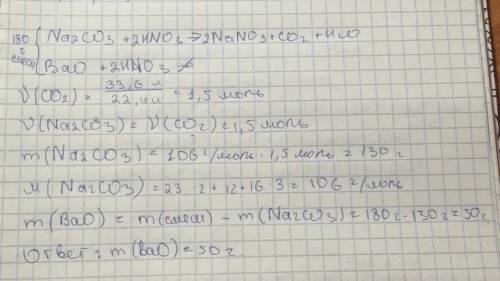 180 г смеси { Na2CO3 + 2HNO3 → 2NaNO3 + CO2 + H2O
BaO + 2HNO3 ↛
ν(CO2) = 33,6 л / 22,4 л = 1,5 моль
ν(Na2CO3) = ν(CO2) = 1,5 моль
m(Na2CO3) = 106 г/моль · 1,5 моль = 130 г
M(Na2CO3) = 23 · 2 + 12 + 16 · 3 = 106 г/моль
m(BaO) = m(смеси) - m(Na2CO3) = 180г - 130г = 50г
Ответ: m(BaO) = 50г.